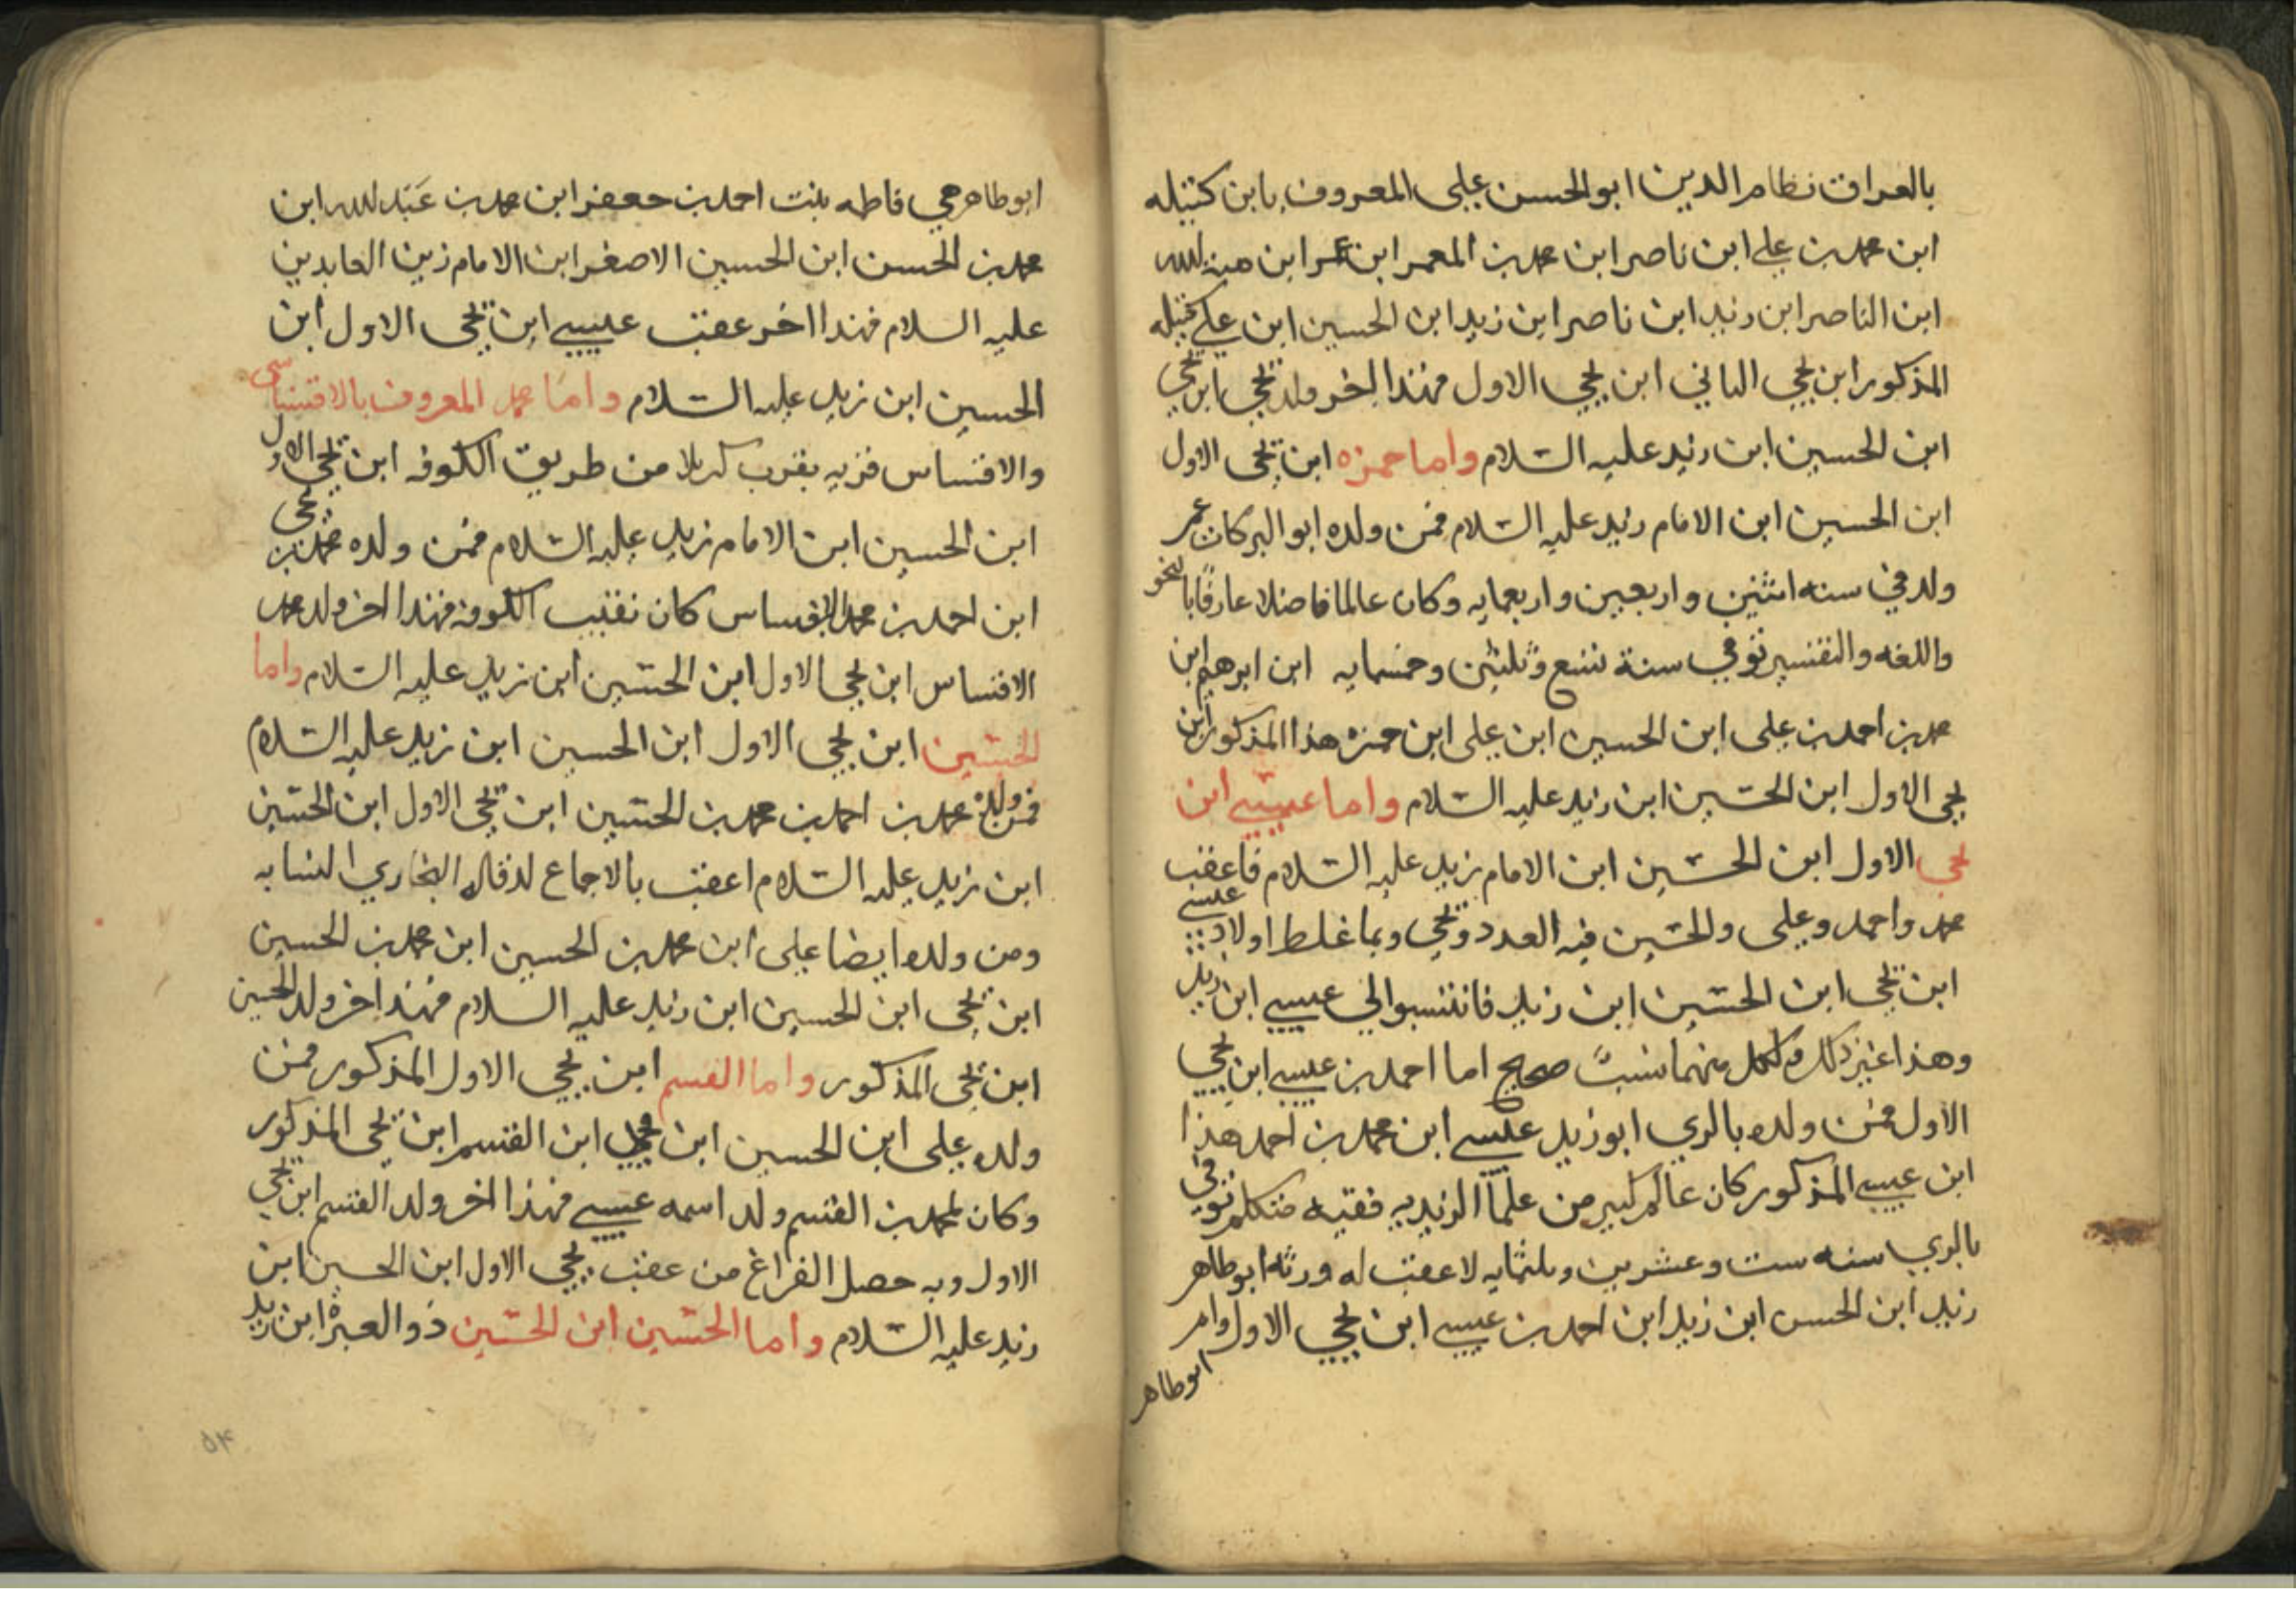 بالعراق نظام الدين ابو الحسن على المعروف بابن كتيله
ابن محمد بن على ابن ناصر ابن محمد بن المعمر ابن عمر ابن هبة الله
ابن الناصر ابن زيد ابن ناصر ابن زيد ابن الحسين ابن على كتيله
المذكور ابن يحيى الثاني ابن يحيى الاول فهذا اخر ولد يحيى ابن يحيى
ابن الحسين ابن زيد عليه السلام واما حمزه ابن يحيى الاول
ابن الحسين ابن الامام زيد عليه السلام فمن ولده ابو البركات عمر
ولد في سنه اثنين واربعين واربعمايه وكان عالما فاضلا عارفا بالنحو
واللغه والتفسير توفي سنة تسع وثلثين وخمسمايه ابن ابرهيم ابن
محمد بن احمد بن على ابن الحسين ابن على ابن حمزه هذا المذكور ابن
يحيى الاول ابن الحسين ابن زيد عليه السلام واما عيسى ابن
يحيى الاول ابن الحسين ابن الامام زيد عليه السلام فاعقب
محمد واحمد وعلى والحسين فيه العدد ويحيى وبما غلط اولاد عيسى
ابن يحيى ابن الحسين ابن زيد فانتسبوا الى عيسى ابن زيد
وهذا غير ذلك ولكل منهما نسبٌ صحيح اما احمد بن عيسى ابن يحيى
الاول فمن ولده بالري ابو زيد عيسى ابن محمد بن احمد هذا
ابن عيسى المذكور كان عالم كبير من علما الزيديه فقيه متكلم توفى
بالري سنه ست وعشرين وثلثمايه لا عقب له ورثه ابو طاهر
زيد ابن الحسن ابن زيد ابن احمد بن عيسى ابن يحيى الاول وام
ابو طاهر
ابو طاهر هي فاطمه بنت احمد بن جعفر ابن محمد بن عبد الله ابن
محمد بن الحسن ابن الحسين الاصغر ابن الامام زين العابدين
عليه السلام فهذا اخر عقب عيسى ابن يحيى الاول ابن
الحسين ابن زيد عليه السلام واما محمد المعروف بالاقساسى
والاقساس قريه بقرب كربلا من طريق الكوفه ابن يحيى الاول
ابن الحسين ابن الامام زيد عليه السلام فمن ولده محمد بن يحيى
ابن احمد بن محمد الاقساس كان نقيب الكوفه فهذا اخر ولد محمد
الاقساس ابن يحيى الاول ابن الحسين ابن زيد عليه السلام واما
الحسين ابن يحيى الاول ابن الحسين ابن زيد عليه السلام
فمن ولده محمد بن احمد بن محمد بن الحسين ابن يحيى الاول ابن الحسين
ابن زيد عليه السلام اعقب بالاجماع لد قال البخاري النسابه
ومن ولده ايضا على ابن محمد بن الحسين ابن محمد بن الحسين
ابن يحيى ابن الحسين ابن زيد عليه السلام فهذا اخر ولد الحسين
ابن يحيى المذكور واما القسم ابن يحيى الاول المذكور فمن
ولده على ابن الحسين ابن محمد ابن القسم ابن يحيى المذكور
وكان لمحمد بن القسم ولد اسمه عيسى فهذا اخر ولد القسم ابن يحيى
الاول وبه حصل الفراغ من عقب يحيى الاول ابن الحسين ابن
زيد عليه السلام واما الحسين ابن الحسين ذو العبرة ابن زيد
٥٤